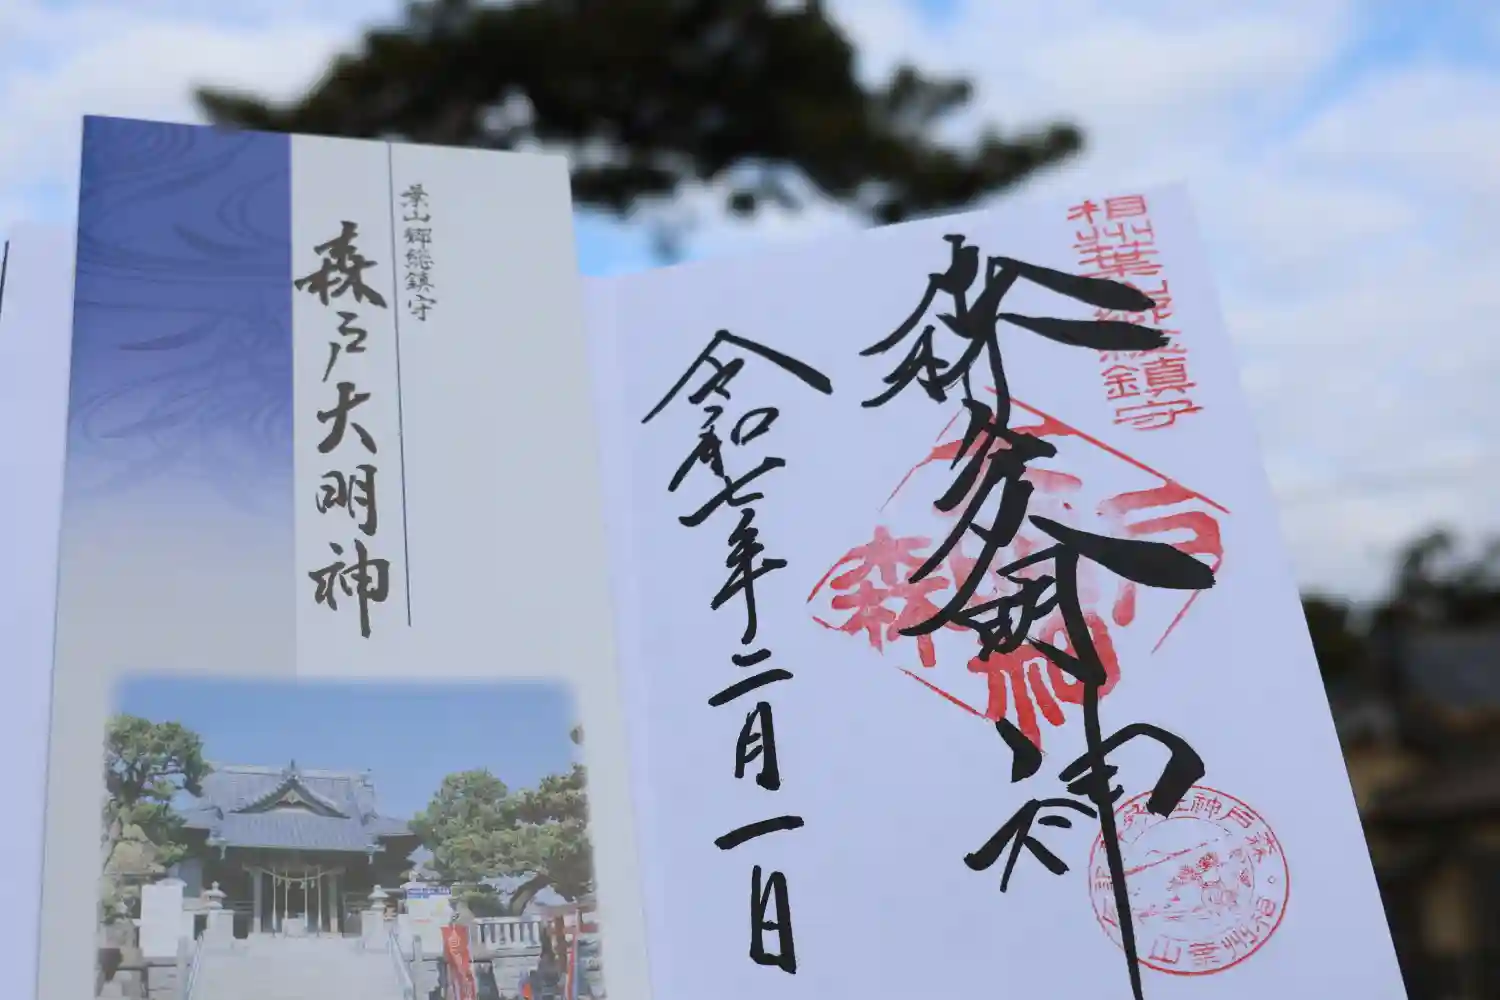 相州葉山郷総鎮守
森戸大明神
令和七年二月一日
葉山郷総鎮守
森戸大明神